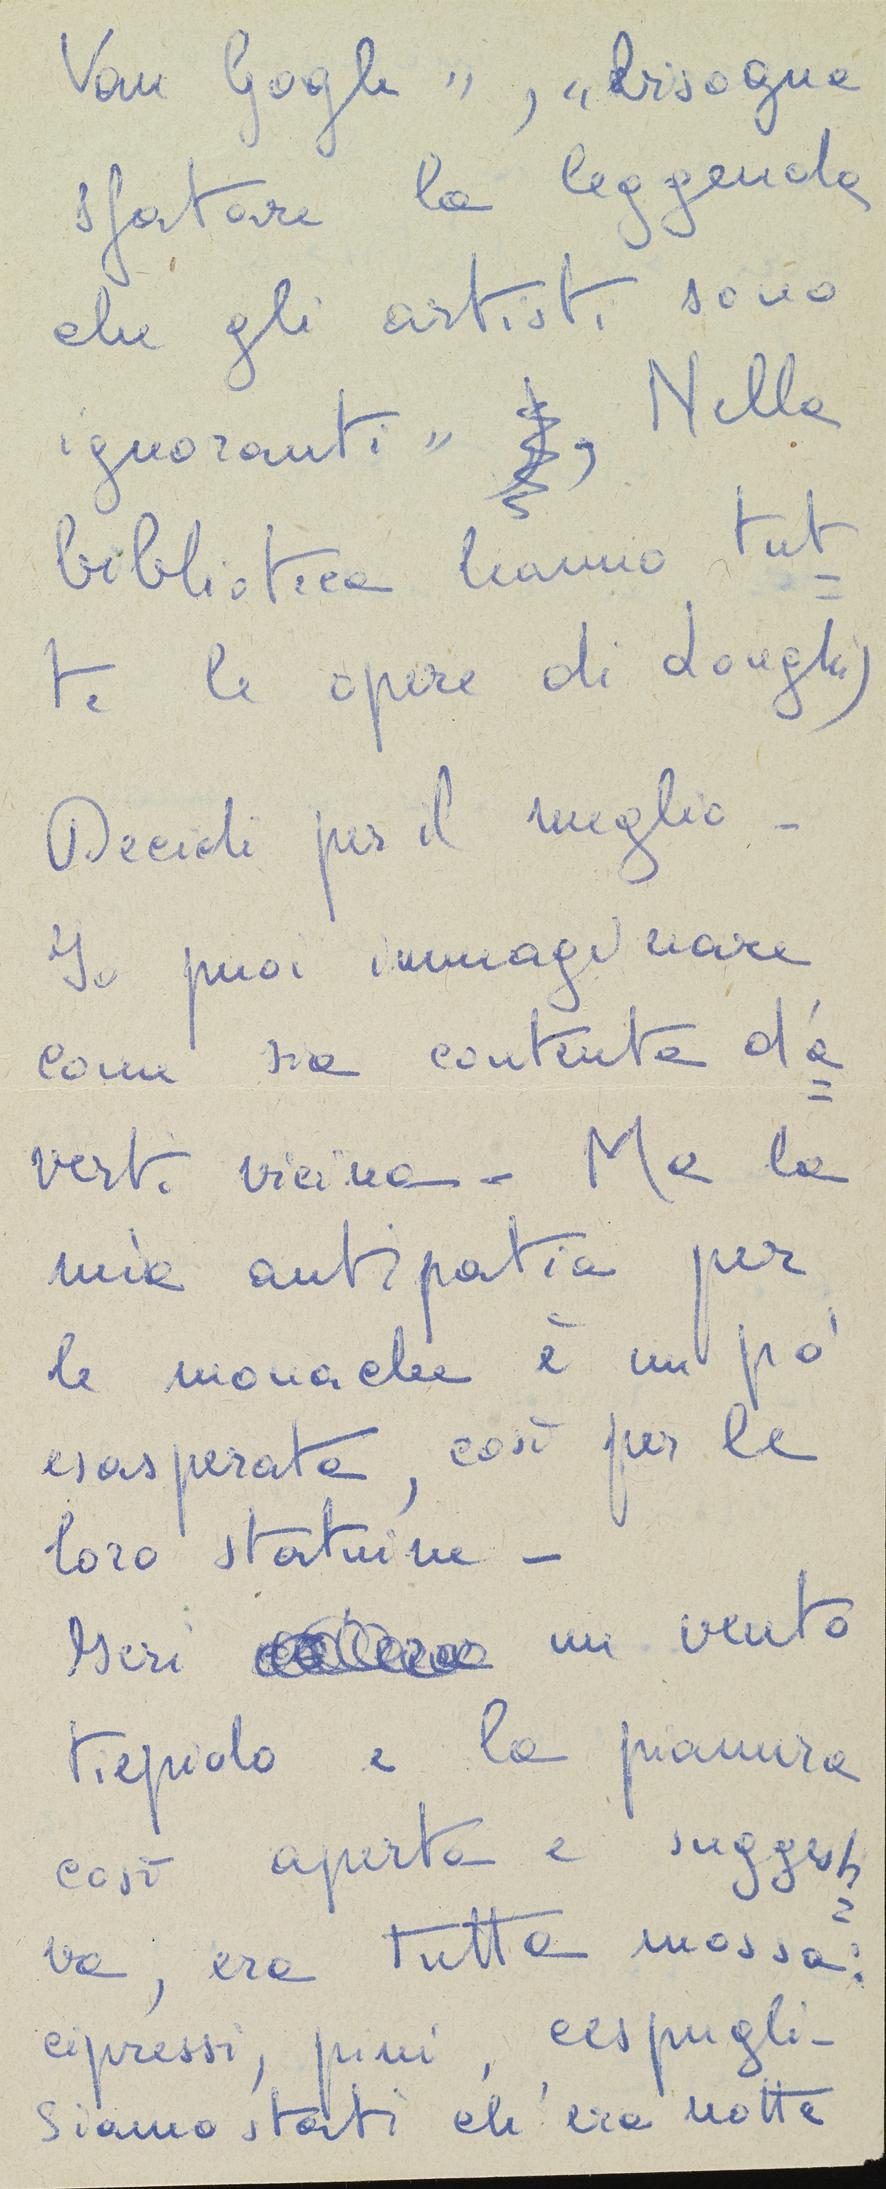 Van Gogh", "bisogna
sfatare la leggenda
che gli artisti sono
ignoranti", Nella
biblioteca hanno tut=
te le opere di Longhi)
Decidi per il meglio -
Tu puoi immaginare
come sia contenta d'a=
verti vicina - Ma la
mia antipatia per
le monache è un pò
esasperata, così per le
loro statuine -
Ieri un vento
tiepido e la pianura
così aperta e suggesti=
va, era tutta mossa:
cipressi, pini, cespugli -
Siamo stati ch'era notte